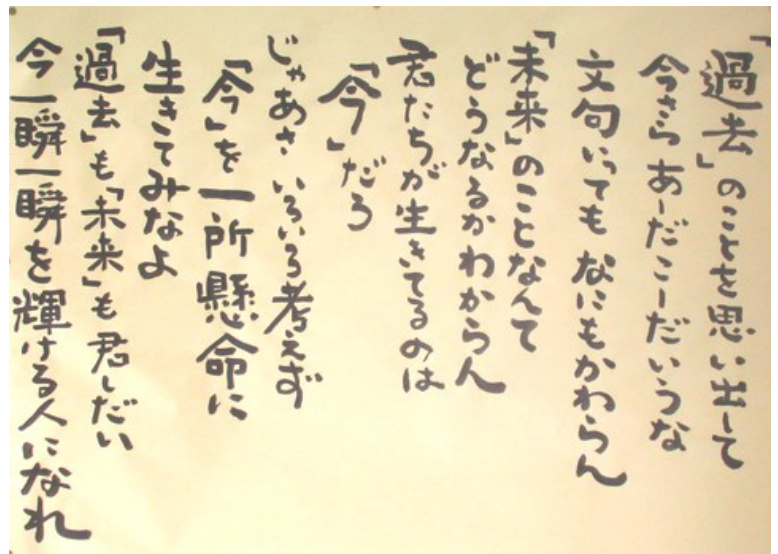 「過去」のことを思い出して
今さらあーだこーだいうな
文句いってもなにもかわらん
「未来」のことなんて
どうなるかわからん
君たちが生きてるのは
「今」だろ
じゃあさ いろいろ考えず
「今」を一所懸命に
生きてみなよ
「過去」も「未来」も君しだい
今一瞬一瞬を輝ける人になれ